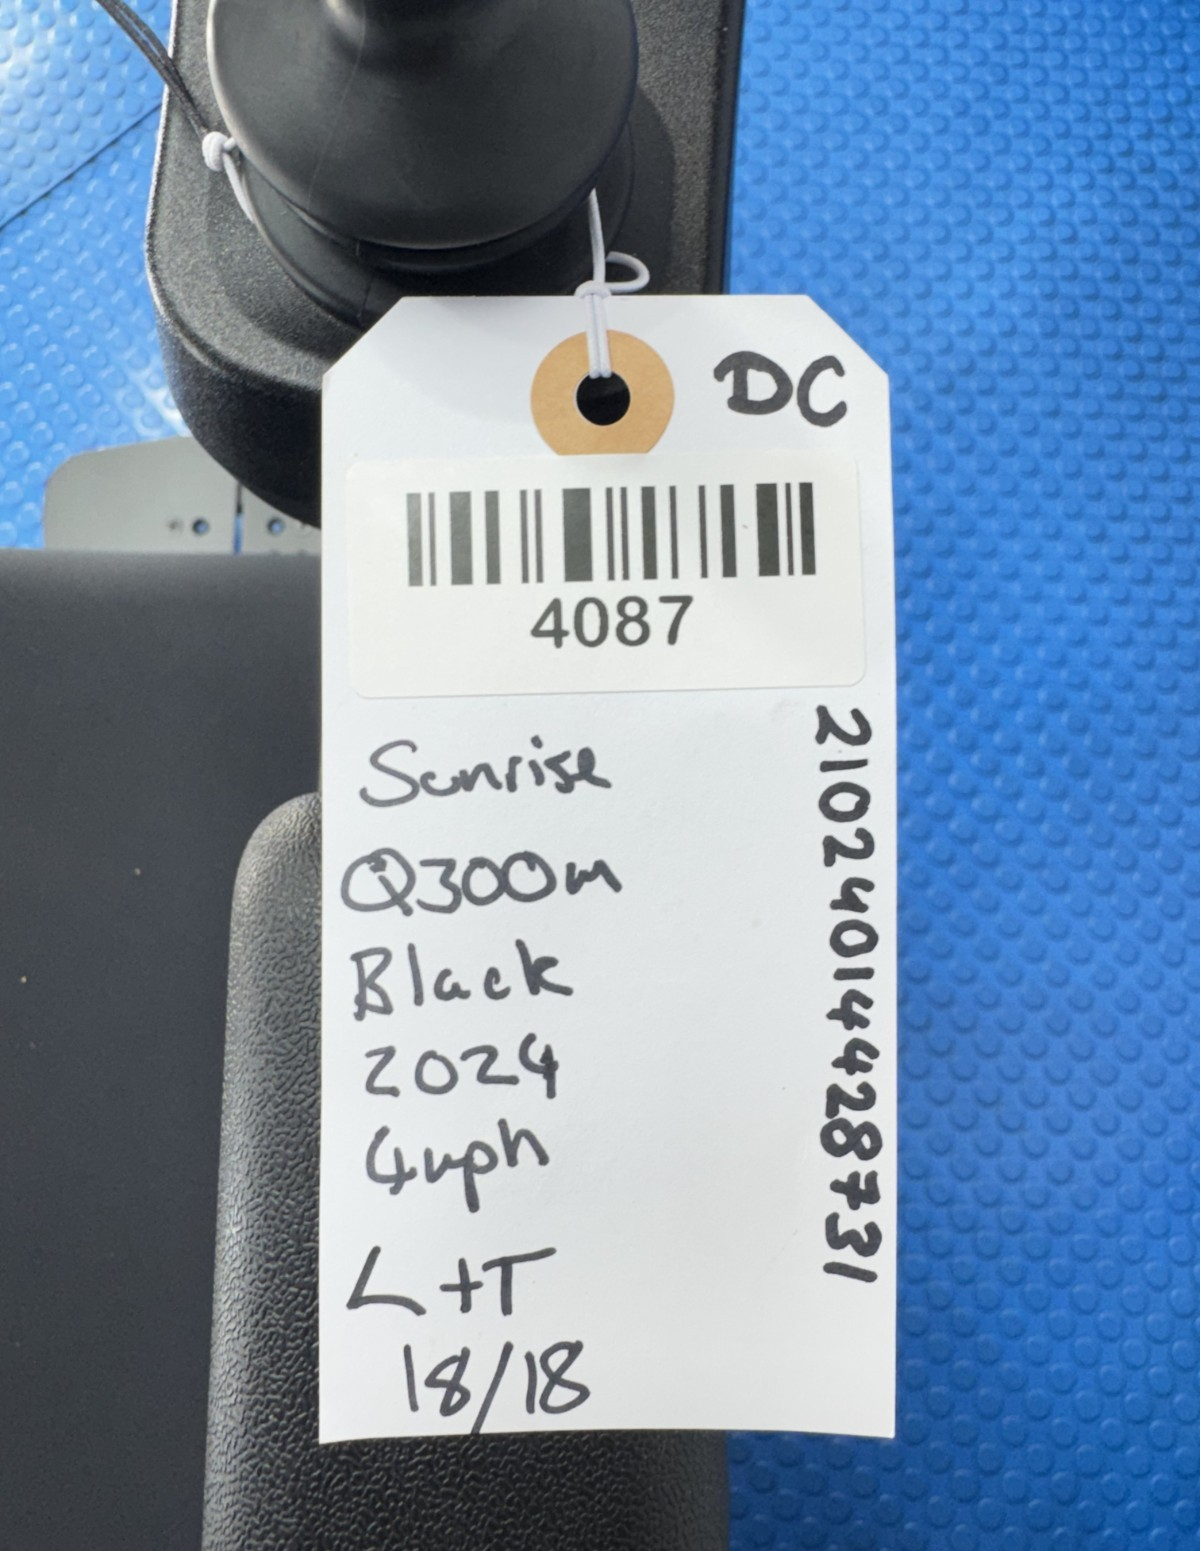 DC
4087
Sunrise
Q300m
Black
2024
4mph
L+T
18/18
21024014428731